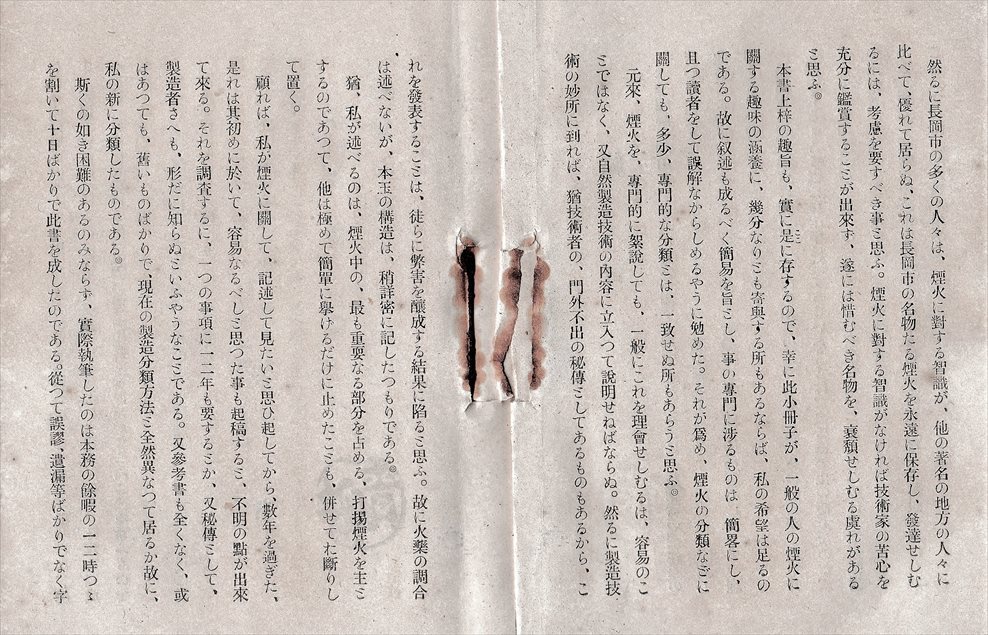 然るに長岡市の多くの人々は、煙火に對する智識が、他の著名の地方の人々に
比べて、優れて居らぬ、これは長岡市の名物たる煙火を永遠に保存し、發達せしむ
るには、考慮を要すべき事と思ふ。煙火に對する智識がなければ技術家の苦心を
充分に鑑賞することが出來ず、遂には惜むべき名物を、衰頽せしむる虞れがある
と思ふ。
本書上梓の趣旨も、實に是に存するので、幸に此小冊子が、一般の人の煙火に
關する趣味の涵養に、幾分なりとも寄與する所もあるならば、私の希望は足るの
である。故に叙述も成るべく簡易を旨とし、事の專門に涉るものは 簡畧にし、
且つ讀者をして誤解なからしめるやうに勉めた。それが爲め、煙火の分類などに
關しても、多少、專門的な分類とは、一致せぬ所もあらうと思ふ。
元來、煙火を、專門的に絮說しても、一般にこれを理會せしむるは、容易のこ
とではなく、又自然製造技術の內容に立入つて說明せねばならぬ。然るに製造技
術の妙所に到れば、猶技術者の、門外不出の秘傳としてあるものもあるから、こ
れを發表することは、徒らに弊害を釀成する結果に陷ると思ふ。故に火藥の調合
は述べないが、本玉の構造は、稍詳密に記したつもりである。
猶、私が述べるのは、煙火中の、最も重要なる部分を占める、打揚煙火を主と
するのであつて、他は極めて簡單に擧げるだけに止めたことも、併せてお斷りし
て置く。
顧れば、私が煙火に關して、記述して見たいと思ひ起してから、數年を過ぎた、
是れは其初めに於いて、容易なるべしと思つた事も起稿すると、不明の點が出來
て來る。それを調査するに、一つの事項に一二年も要するとか、又秘傳として、
製造者さへも、形だに知らぬといふやうなことである。又參考書も全くなく、或
はあつても、舊いものばかりで、現在の製造分類方法と全然異なつて居るか故に、
私の新に分類したものである。
斯くの如き困難のあるのみならず、實際執筆したのは本務の餘暇の一二時つゝ
を割いて十日ばかりで此書を成したのである。從つて誤謬、遺漏等ばかりでなく字